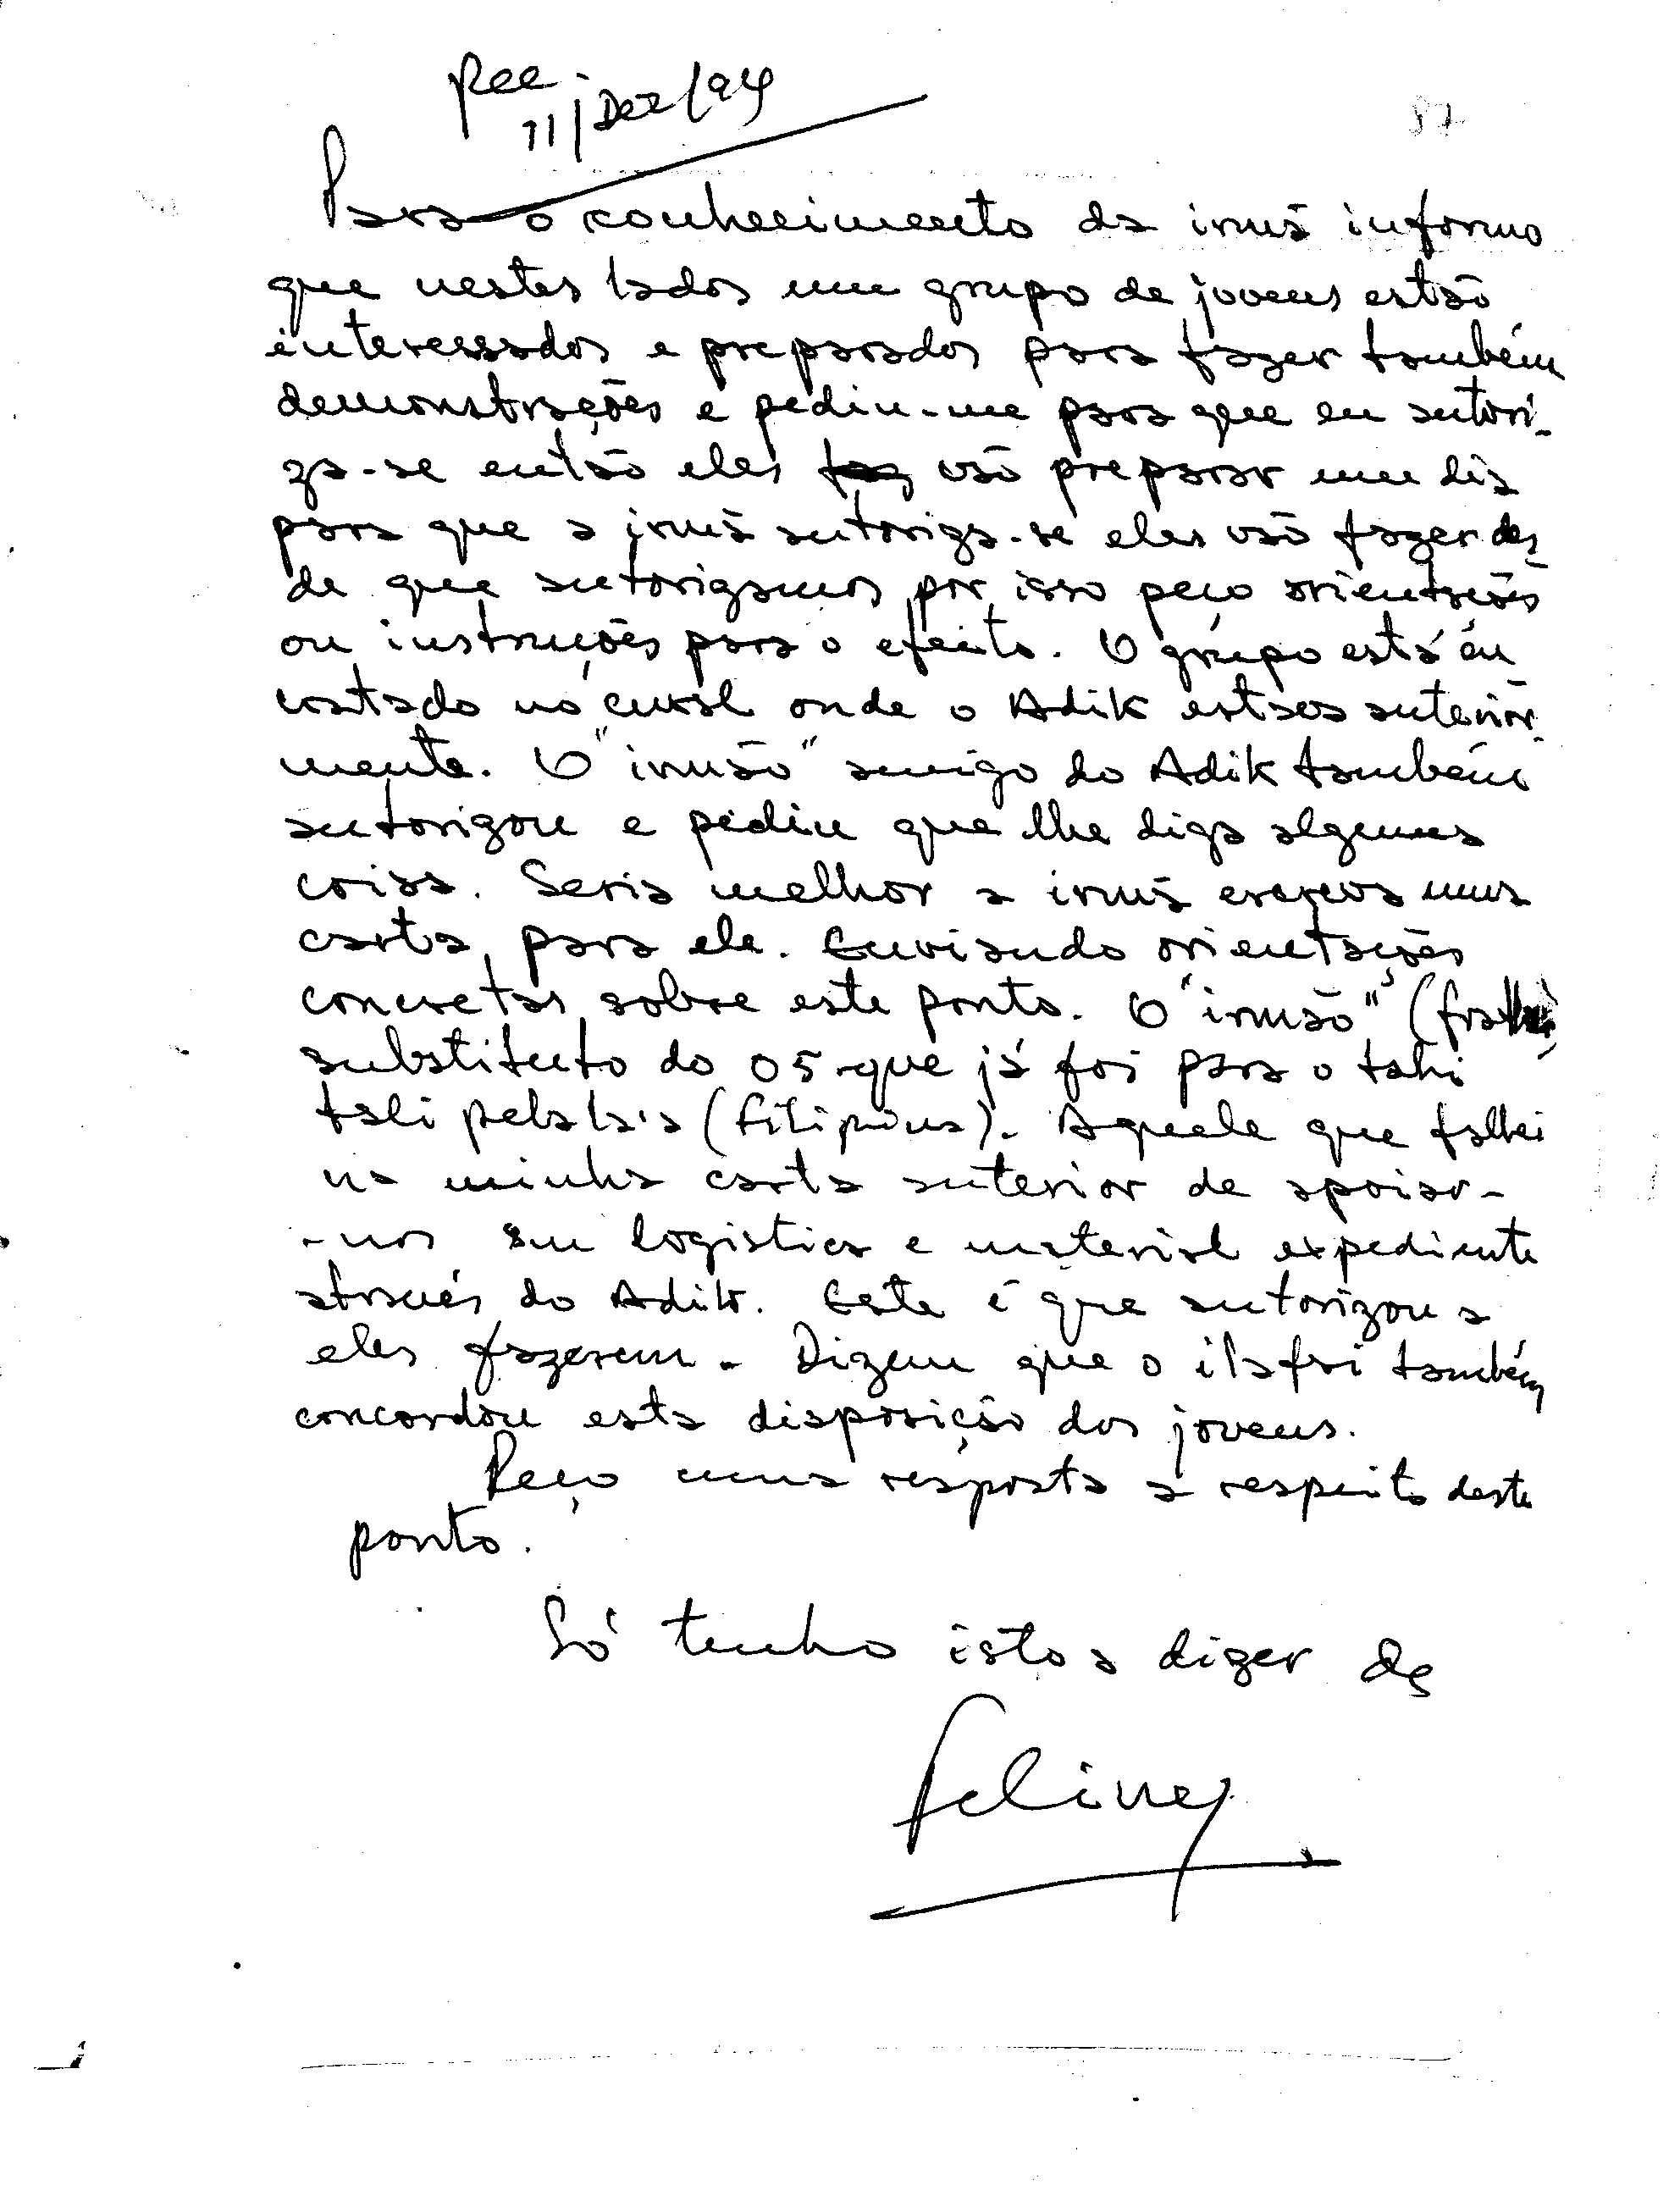 Rec.
11/Dez/94
87
Para o conhecimento da irmã informo
que nestes lados um grupo de jovens estão
interessados e preparados para fazer também
demonstrações e pediu-me para que eu autori-
za-se então eles vão preparar um dia
para que a irmã autoriza-se eles vão fazer des-
de que autorizamos por isso peço orientações
ou instruções para o efeito. O grupo está en
costado no "cural onde o Adik estava anterior-
mente. O "irmão" amigo do Adik também
autorizou e pediu que lhe diga alguma
coisa. Seria melhor a irmã escreva uma
carta para ele. Enviando orientações
concretas sobre este ponto. O "irmão" (
substituto do 05 que já foi para o tahi
tali pelala'a (Filipina). Aquele que falhei
na minha carta anterior de apoiar-
-nos em logistica e material expediente
através do Adik. Este é que autorizou a
eles fazerem. Dizem que o ilafai também
concordou esta disposição dos jovens.
Peço uma resposta a respeito deste
ponto.
Só tenho isto a dizer de